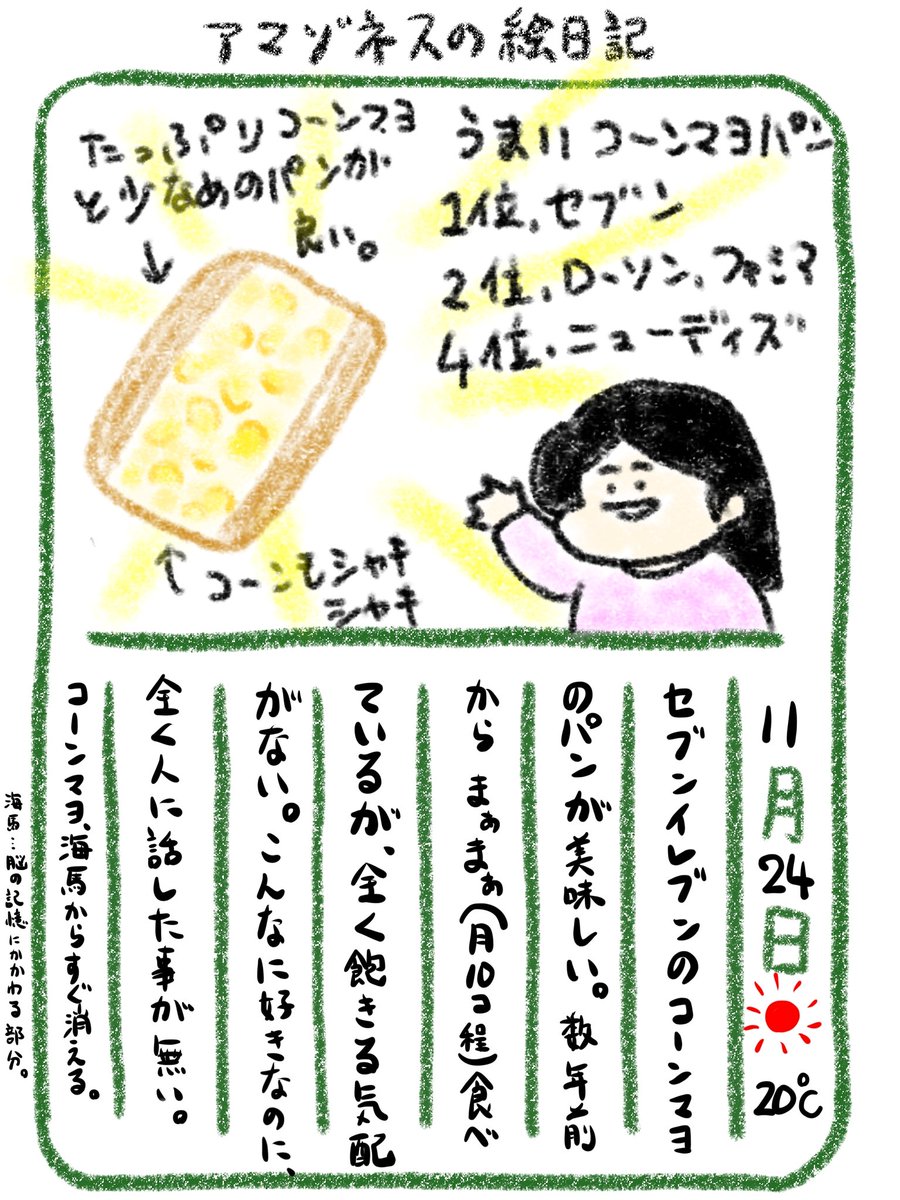 アマゾネスの絵日記
たっぷりコーンマヨ
と少なめのパンが
良い。
↓
↑コーンもシャキ
シャキ
うまいコーンマヨパン
1位、セブン
2位、ローソン、ファミマ
4位、ニューディズ
11月24日
20℃
セブンイレブンのコーンマヨ
のパンが美味しい。数年前
から まぁまぁ(月10コ程)食べ
ているが、全く飽きる気配
がない。こんなに好きなのに、
全く人に話した事が無い。
コーンマヨ、海馬からすぐ消える。
海馬…脳の記憶にかかわる部分。